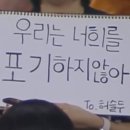 우리는 너희를
포기하지않아
To.허슬두